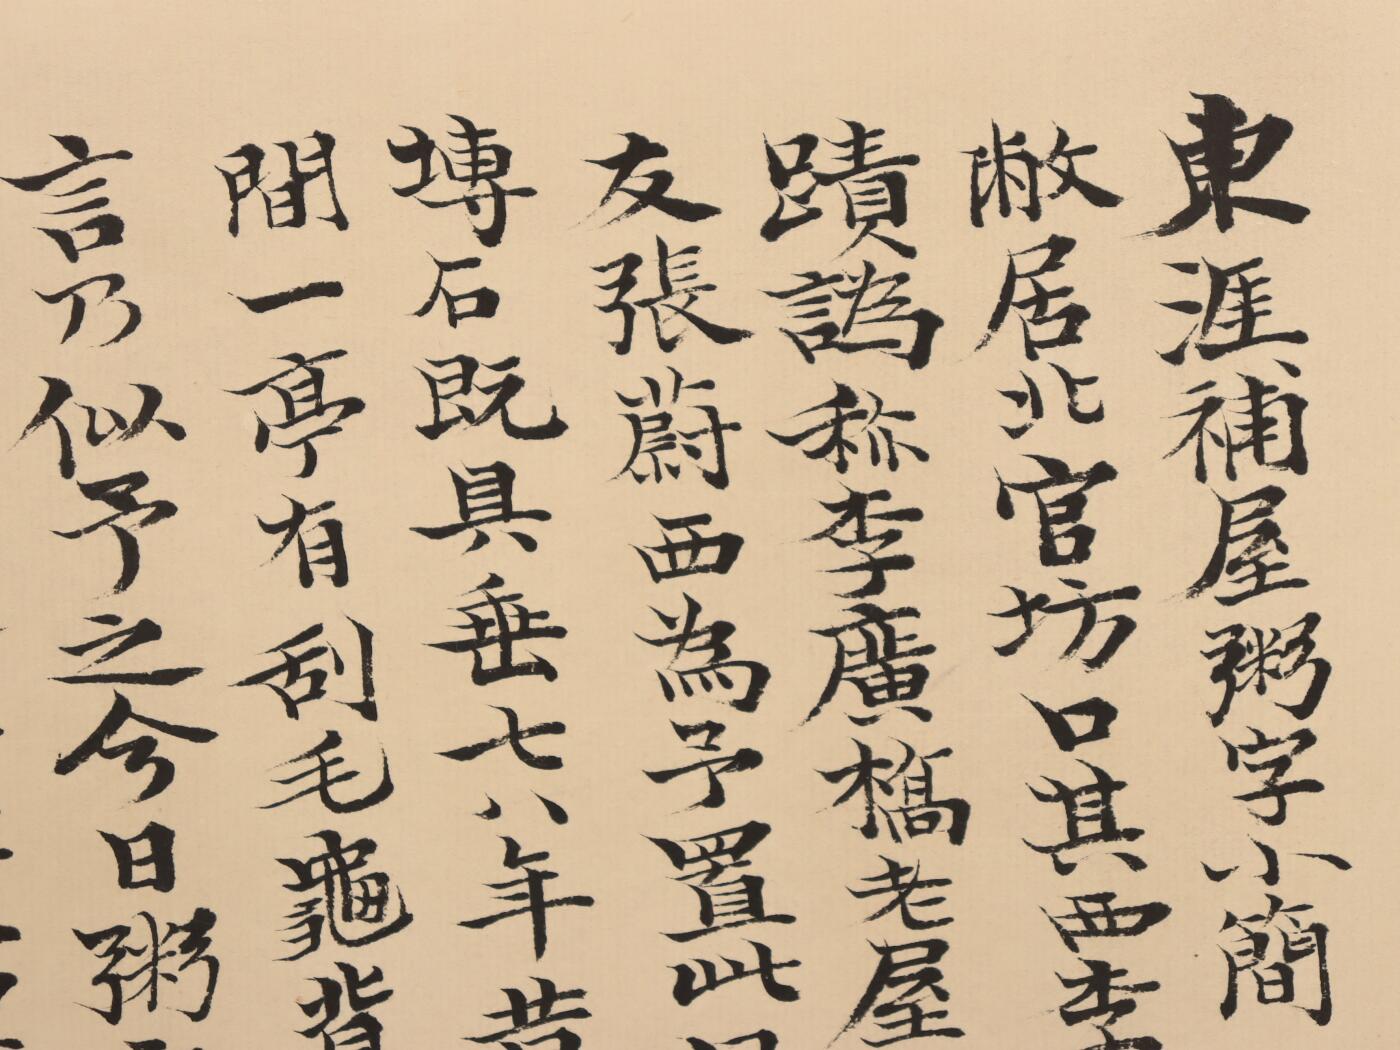 東涯補屋粥字小簡
敝居北官坊口其西李
蹟譌称李廣橋老屋
友張蔚西為予置此
塼石既具垂七八年昔
間一亭有刮毛龜背
言乃似予之今日粥